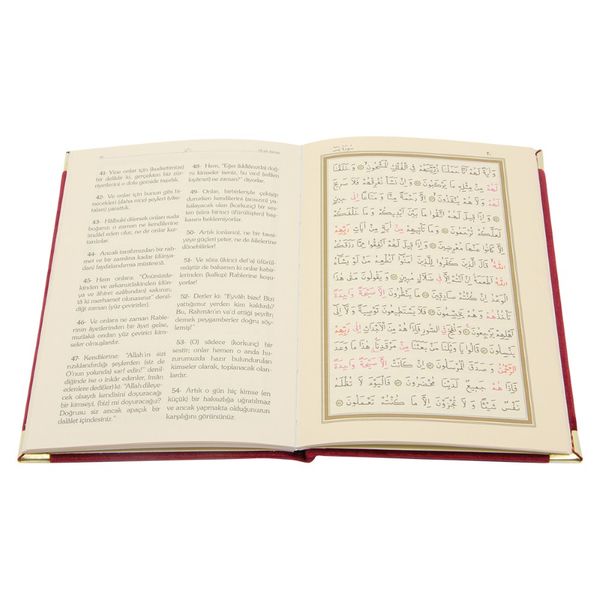 41- Yine onlar için (kudretimize)
bir delildir ki, gerçekten biz zür-
riyetlerini o dolu gemide taşıdık.
42- Ve onlar için bunun gibi bi-
necekleri (daha nice) şeyleri (vâsı-
taları) yarattık.
43- Hâlbuki dilersek onları suda
boğarız; o zaman ne kendilerine
imdâd eden olur, ne de onlar kur-
tarılırlar.
44- Ancak tarafımızdan bir rah-
met ve bir zamâna kadar (dünya-
dan) faydalandırma müstesnâ.
45- Hem onlara: "Önünüzde-
kinden ve arkanızdakinden (dün-
ya ve âhiret azâbından) sakının;
tâ ki merhamet olunasınız" denil-
diği zaman (yüz çevirirler).
46- Ve onlara ne zaman Rable-
rinin âyetlerinden bir âyet gelse,
mutlaka ondan yüz çevirici kim-
seler olmuşlardır.
47- Kendilerine: "Allah'ın sizi
rızıklandırdığı şeylerden (siz de
O'nun yolunda) sarf edin!" denil-
diğinde ise o inkâr edenler, îmân
edenlere dediler ki: "Allah dileyecek
olsaydı kendisini doyuracağı
bir kimseyi, (biz) mi doyuracağız?
Doğrusu siz ancak apaçık bir
dalâlet içindesiniz."
48- Hem, "Eğer (iddiânızda) doğ-
ru kimseler iseniz, bu va'd (edilen
kıyâmet) ne zaman?" diyorlar.
49- Onlar, birbirleriyle çekişip
dururlarken kendilerini (ansızın) ya-
kalayacak olan (korkunç) bir ses-
den (sûra birinci üfürülüşten) baş-
kasını beklemiyorlar.
50- Artık (onlar) ne bir tavsi-
yeye güçleri yeter, ne de âilelerine
dönebilirler!
51- Ve sûra (ikinci def'a) üfürül-
müştür de bakarsın ki onlar kabir-
lerinden (kalkıp) Rablerine koşu-
yorlar.
52- Derler ki: "Eyvâh bize! Bizi
yattığımız yerden kim kaldırdı?
Bu, Rahmân'ın va'd ettiği şeydir;
demek peygamberler doğru söyle-
miş!"
53- (O) sâdece (korkunç) bir
sestir; onlar hemen o anda hu-
zurumuzda hazır bulundurulan
kimseler olarak, toplanacak olan-
lardır.
54- Artık o gün hiç kimse (en
küçük) bir haksızlığa uğratılmaz
ve ancak yapmakta olduğunuzun
karşılığını görürsünüz.
وَاٰيَةٌ لَهُمْ اَنَّا حَمَلْنَا ذُرِّيَّتَهُمْ فِي الْفُلْكِ الْمَشْحُونِ وَخَلَقْنَا
لَهُمْ مِنْ مِثْلِهِ مَا يَرْكَبُونَ وَاِنْ نَشَأْ نُغْرِقْهُمْ فَلَا صَرِيخَ
لَهُمْ وَلَا هُمْ يُنْقَذُونَ اِلَّا رَحْمَةً مِنَّا وَمَتَاعًا اِلٰى
حِينٍ وَاِذَا قِيلَ لَهُمُ اتَّقُوا مَا بَيْنَ اَيْدِيكُمْ وَمَا خَلْفَكُمْ
لَعَلَّكُمْ تُرْحَمُونَ وَمَا تَأْتِيهِمْ مِنْ اٰيَةٍ مِنْ اٰيَاتِ رَبِّهِمْ
اِلَّا كَانُوا عَنْهَا مُعْرِضِينَ وَاِذَا قِيلَ لَهُمْ اَنْفِقُوا مِمَّا رَزَقَكُمُ
اللّٰهُ قَالَ الَّذِينَ كَفَرُوا لِلَّذِينَ اٰمَنُوا اَنُطْعِمُ مَنْ لَوْ يَشَاءُ
اللّٰهُ اَطْعَمَهُ اِنْ اَنْتُمْ اِلَّا فِي ضَلَالٍ مُبِينٍ وَيَقُولُونَ مَتٰى هٰذَا
الْوَعْدُ اِنْ كُنْتُمْ صَادِقِينَ مَا يَنْظُرُونَ اِلَّا صَيْحَةً وَاحِدَةً
تَأْخُذُهُمْ وَهُمْ يَخِصِّمُونَ فَلَا يَسْتَطِيعُونَ تَوْصِيَةً وَلَا اِلٰى
اَهْلِهِمْ يَرْجِعُونَ وَنُفِخَ فِي الصُّورِ فَاِذَا هُمْ مِنَ الْاَجْدَاثِ اِلٰى رَبِّهِمْ
يَنْسِلُونَ قَالُوا يَا وَيْلَنَا مَنْ بَعَثَنَا مِنْ مَرْقَدِنَا هٰذَا مَا وَعَدَ
الرَّحْمٰنُ وَصَدَقَ الْمُرْسَلُونَ اِنْ كَانَتْ اِلَّا صَيْحَةً وَاحِدَةً
فَاِذَا هُمْ جَمِيعٌ لَدَيْنَا مُحْضَرُونَ فَالْيَوْمَ لَا تُظْلَمُ
نَفْسٌ شَيْئًا وَلَا تُجْزَوْنَ اِلَّا مَا كُنْتُمْ تَعْمَلُونَ